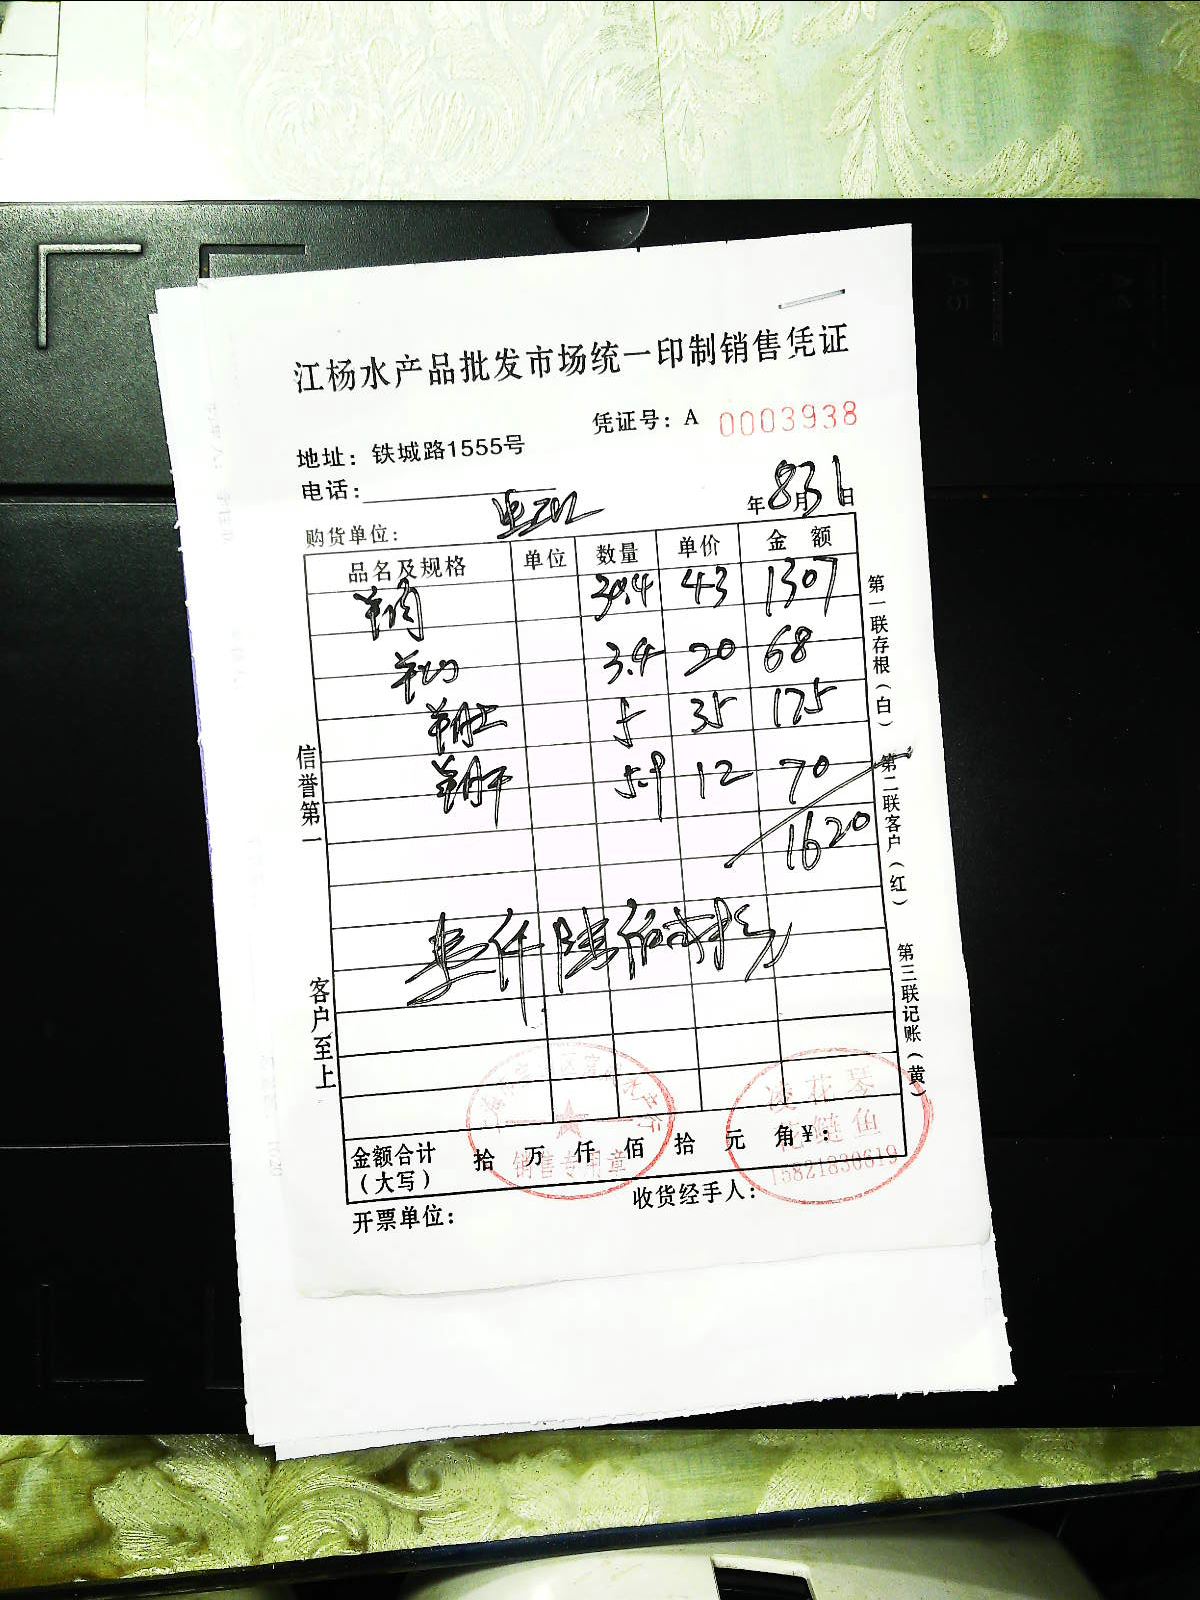 江杨水产品批发市场统一印制销售凭证
凭证号：A 0003938
地址：铁城路1555号
电话：
年8月31日
购货单位：
品名及规格 单位 数量 单价 金额
羊肉 30.4 43 1307
3.4 20 68
羊肚 5 35 175
羊肝 5.9 12 70
1620
壹仟陆佰贰拾
金额合计（大写） 拾 万 仟 佰 拾 元 角 ¥：
开票单位：
收货经手人：
信誉第一
客户至上
第一联存根（白）
第二联客户（红）
第三联记账（黄）
销售专用章
凌花琴
花鲢鱼
15821830619
A5
A4